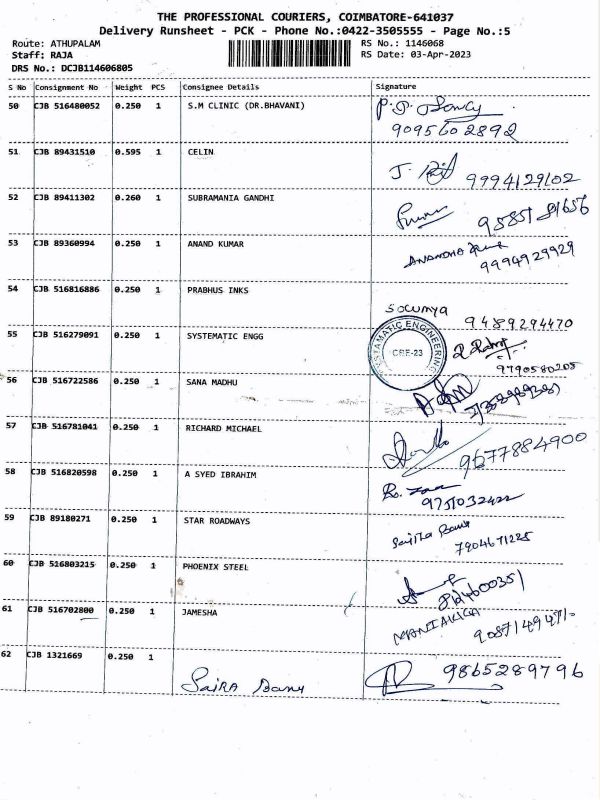 THE PROFESSIONAL COURIERS, COIMBATORE-641037
Delivery Runsheet - PCK - Phone No.:0422-3505555 - Page No.:5
Route: ATHUPALAM RS No.: 1146068
Staff: RAJA RS Date: 03-Apr-2023
DRS No.: DCJB114606805
S No Consignment No Weight PCS Consignee Details Signature
50 CJB 516480052 0.250 1 S.M CLINIC (DR.BHAVANI)
9095602892
51 CJB 89431510 0.595 1 CELIN
9994129102
52 CJB 89411302 0.260 1 SUBRAMANIA GANDHI
53 CJB 89360994 0.250 1 ANAND KUMAR
9994929929
54 CJB 516816886 0.250 1 PRABHUS INKS
Sowmya
9489294470
55 CJB 516279091 0.250 1 SYSTEMATIC ENGG
SYSTAMATIC ENGINEERING
CBE-23
9790580205
56 CJB 516722586 0.250 1 SANA MADHU
57 CJB 516781041 0.250 1 RICHARD MICHAEL
9677884900
58 CJB 516820598 0.250 1 A SYED IBRAHIM
59 CJB 89180271 0.250 1 STAR ROADWAYS
7904671225
60 CJB 516803215 0.250 1 PHOENIX STEEL
61 CJB 516702800 0.250 1 JAMESHA
62 CJB 1321669 0.250 1
Saira Banu
9865289796